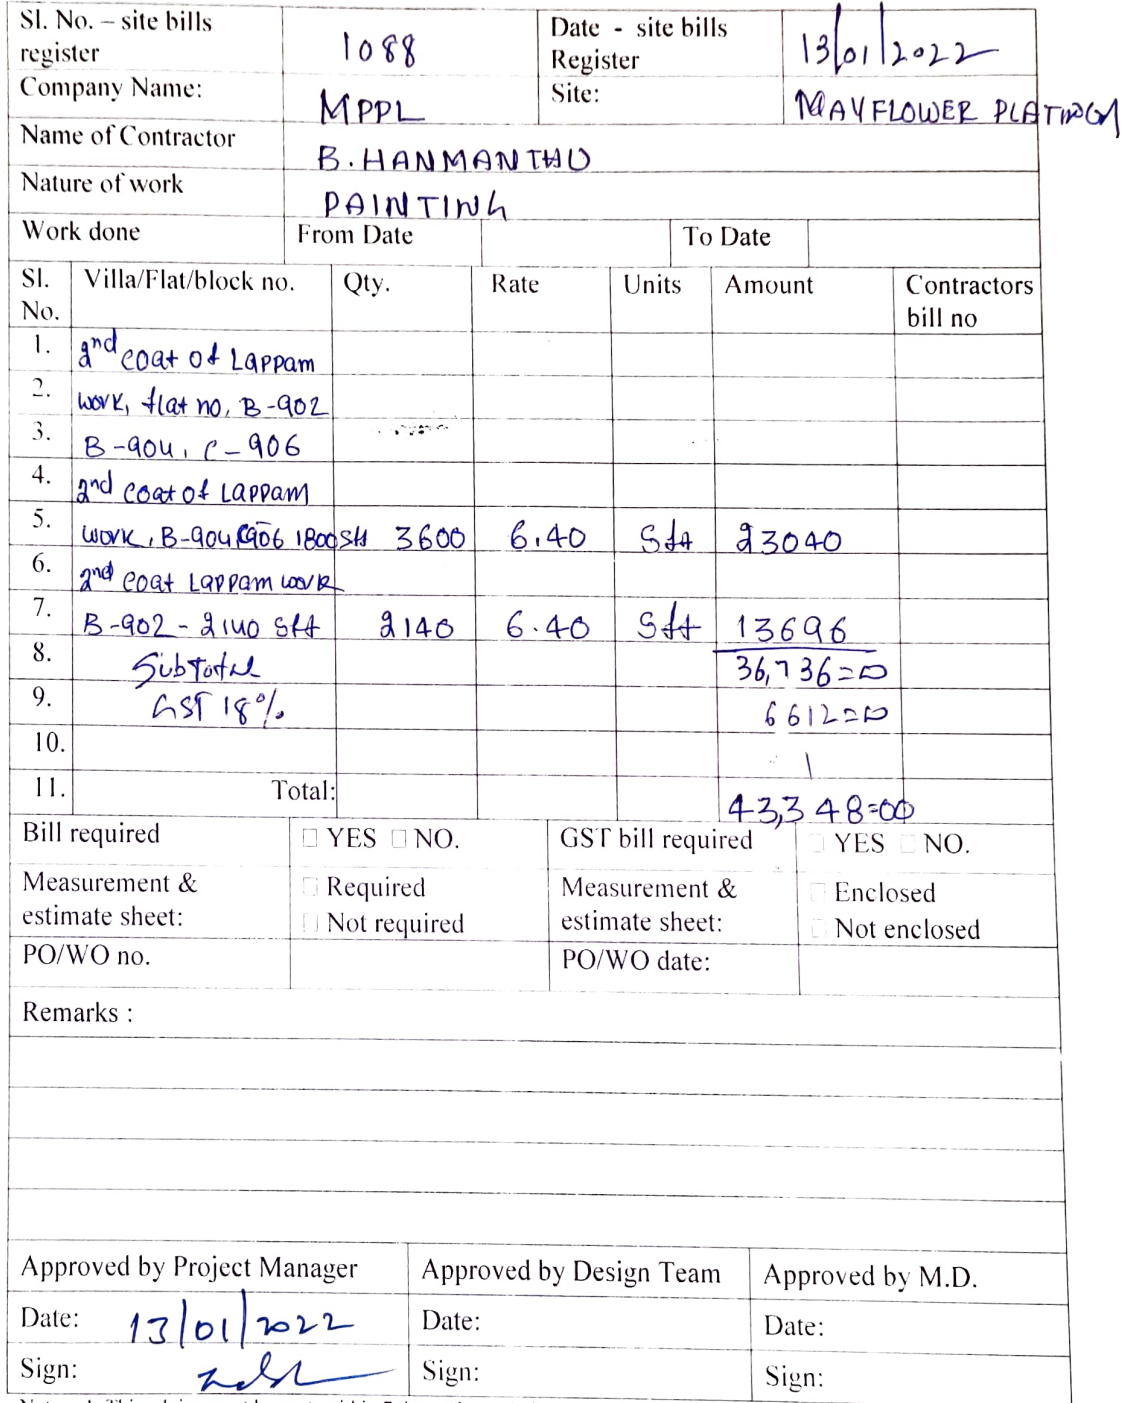 Sl. No. – site bills register 1088 Date - site bills Register 13/01/2022
Company Name: MPPL Site: MAYFLOWER PLATINUM
Name of Contractor B. HANMANTHU
Nature of work PAINTING
Work done From Date To Date
Sl. No. Villa/Flat/block no. Qty. Rate Units Amount Contractors bill no
1. 2nd coat of Lappam
2. work, flat no, B-902
3. B-904, C-906
4. 2nd coat of Lappam
5. work, B-904 C906 1800 Sft 3600 6.40 Sft 23040
6. 2nd coat Lappam work
7. B-902 - 2140 Sft 2140 6.40 Sft 13696
8. SubTotal 36,736=00
9. GST 18% 6612=00
10.
11. Total: 43,348=00
Bill required YES NO. GST bill required YES NO.
Measurement & estimate sheet: Required Not required Measurement & estimate sheet: Enclosed Not enclosed
PO/WO no. PO/WO date:
Remarks :
Approved by Project Manager Approved by Design Team Approved by M.D.
Date: 13/01/2022 Date: Date:
Sign: Sign: Sign: